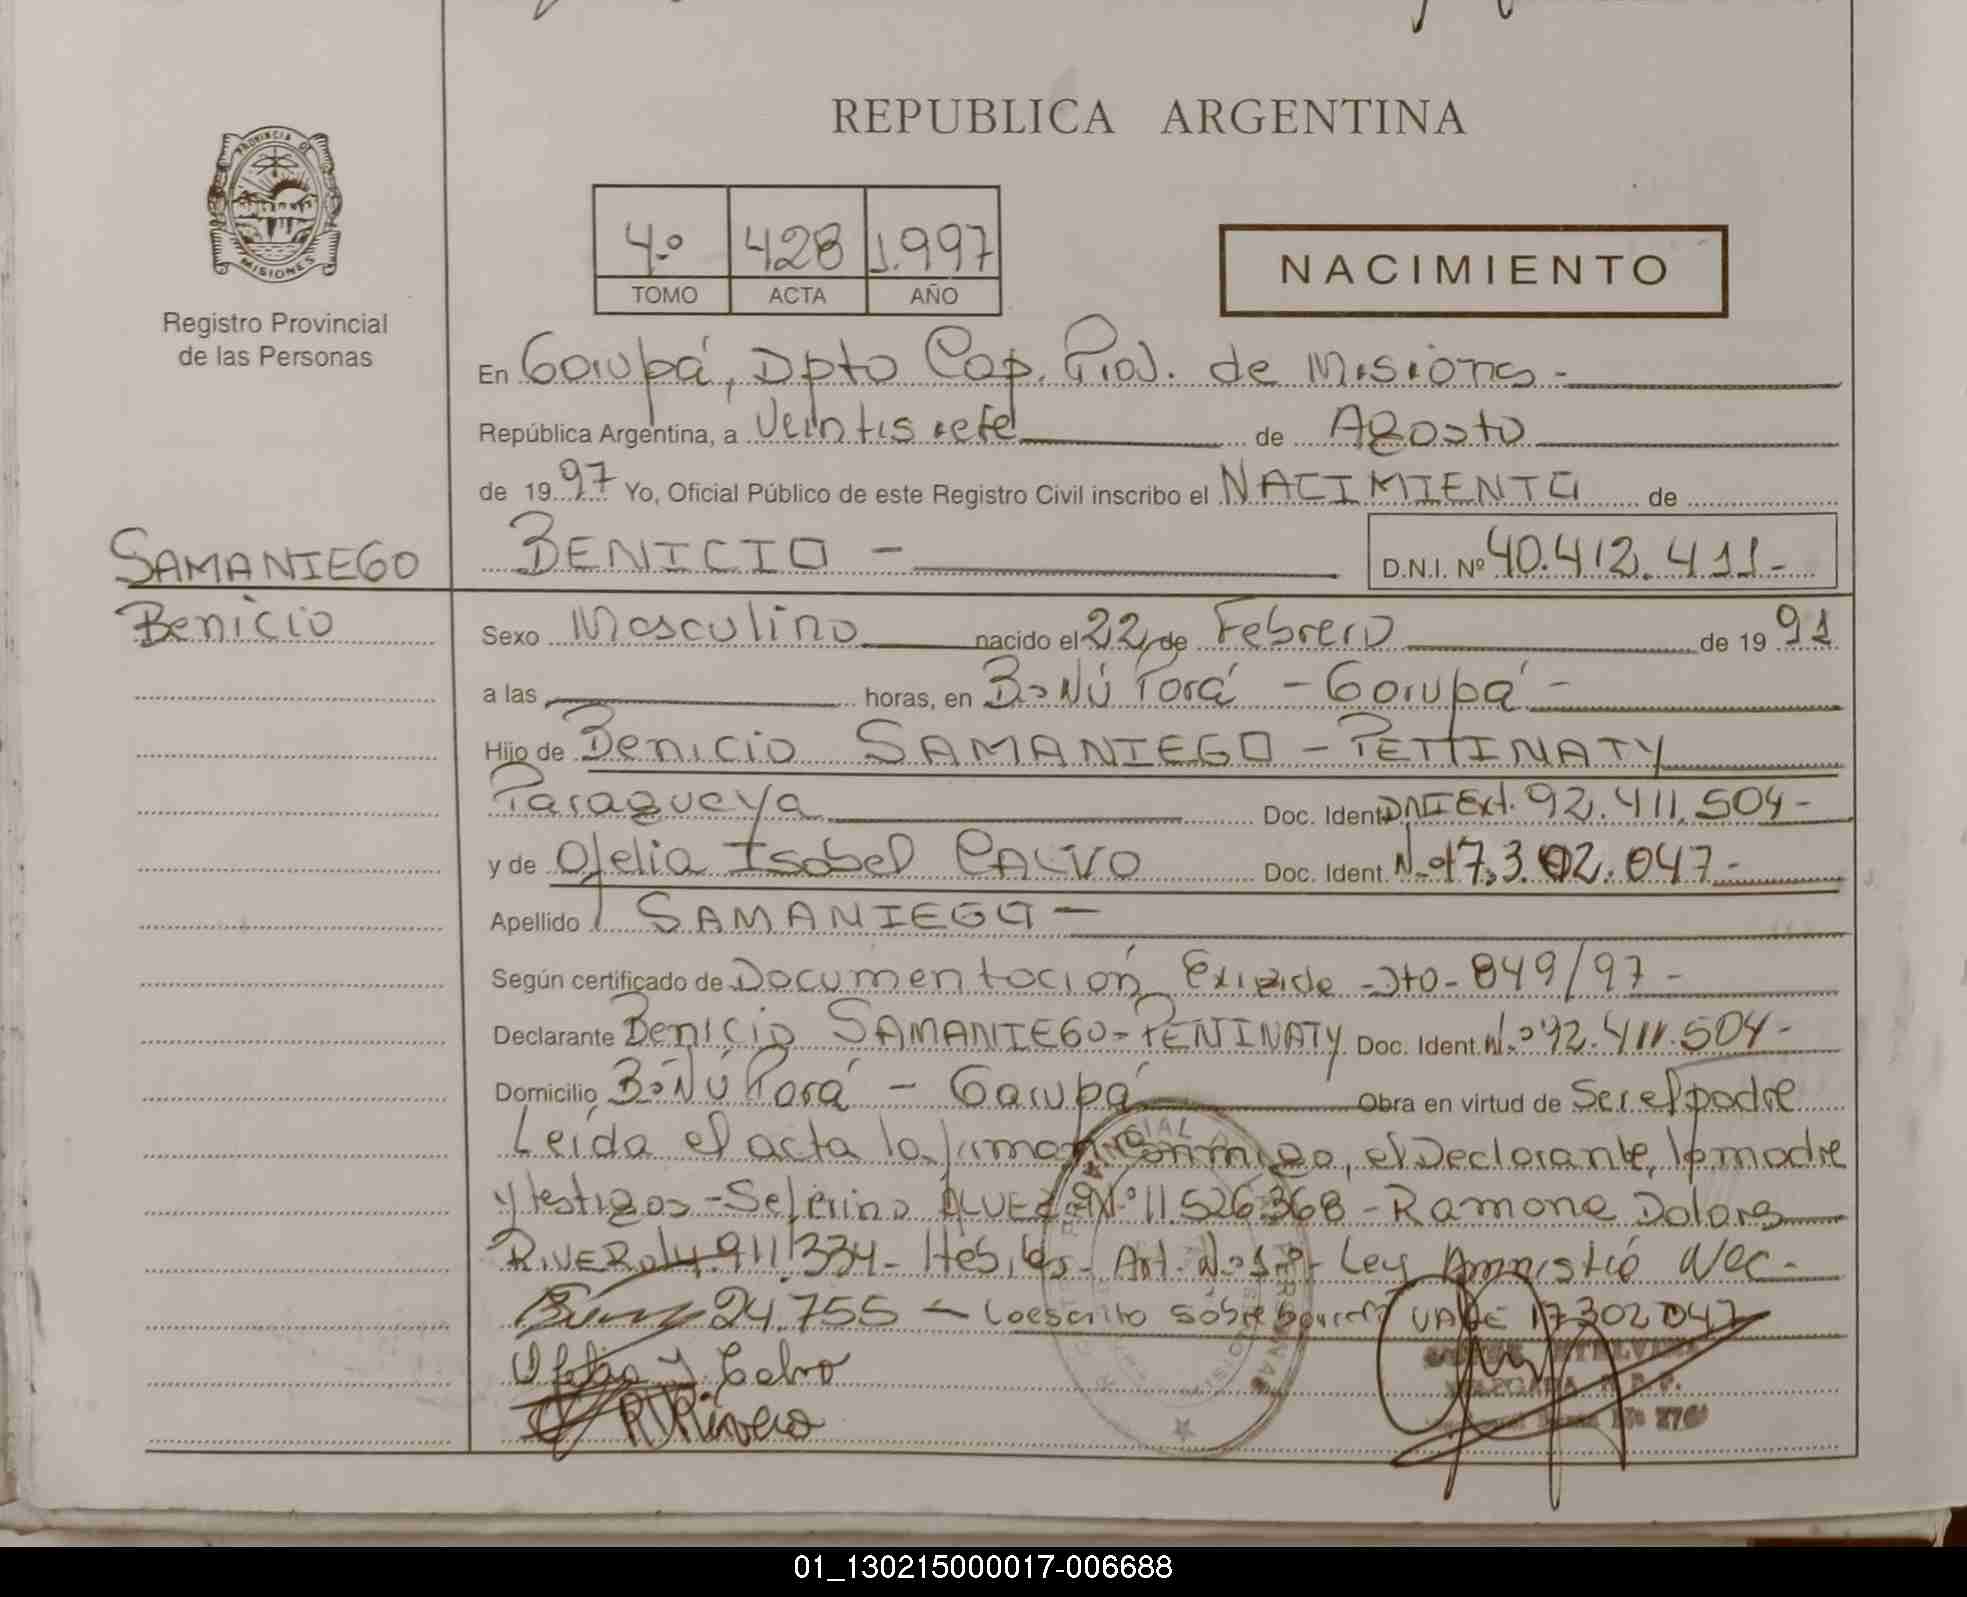 REPUBLICA ARGENTINA
PROVINCIA DE
MISIONES
Registro Provincial
de las Personas
4º 428 1.997
TOMO ACTA AÑO
NACIMIENTO
En Garupá, Dpto Cap. Prov. de Misiones -
República Argentina, a Veintisiete de Agosto
de 1997 Yo, Oficial Público de este Registro Civil inscribo el NACIMIENTO de
SAMANIEGO
BENICIO - D.N.I. Nº 40.412.411-
Benicio
Sexo Masculino nacido el 22 de Febrero de 1991
a las horas, en Bº Ñú Porá - Garupá -
Hijo de Benicio SAMANIEGO - PETTINATY
Paraguaya Doc. Ident. DNI Ext. 92.411.504-
y de Ofelia Isabel CALVO Doc. Ident. Nº 17.302.047-
Apellido SAMANIEGO -
Según certificado de Documentación Exigida -Dto- 849/97 -
Declarante Benicio SAMANIEGO-PENINATY Doc. Ident. Nº 92.411.504-
Domicilio Bº Ñú Porá - Garupá Obra en virtud de Ser el padre
Leída el acta la firman conmigo, el Declarante, la madre
y testigos - Seferino ALVEZ Nº 11.526.368 - Ramona Dolores
RIVERO 14.911.334- Art. Nº 1º- Ley Amnistía Nac.
24.755 - Lo escrito sobre VALE 17302047
Calvo
R Rivero
01_130215000017-006688